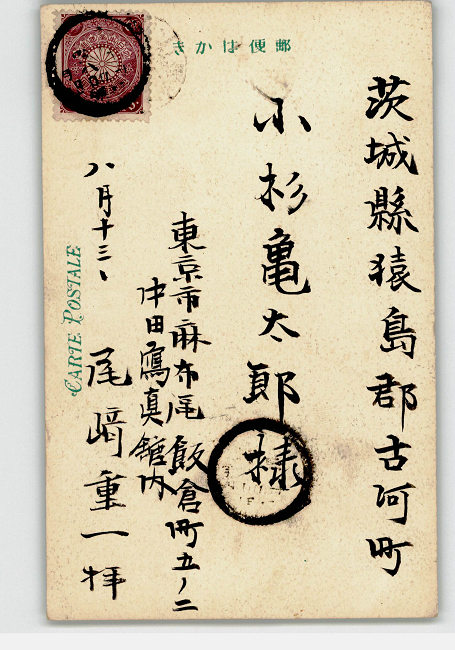 郵便はかき
茨城縣猿島郡古河町
小杉亀太郎様
東京市麻布區飯倉町五ノ二
中田寫真舘内
八月十三、
尾﨑重一拝
CARTE POSTALE